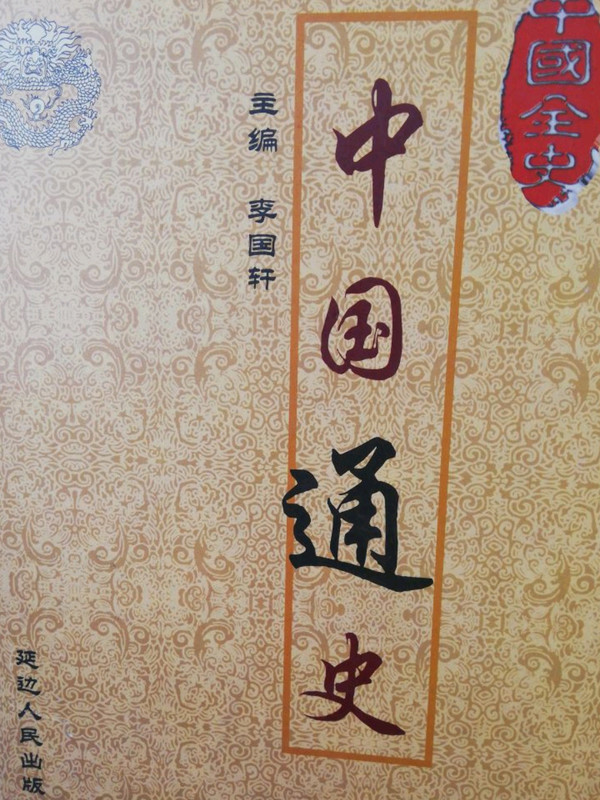 中國全史
中国通史
主编 李国轩
延边人民出版